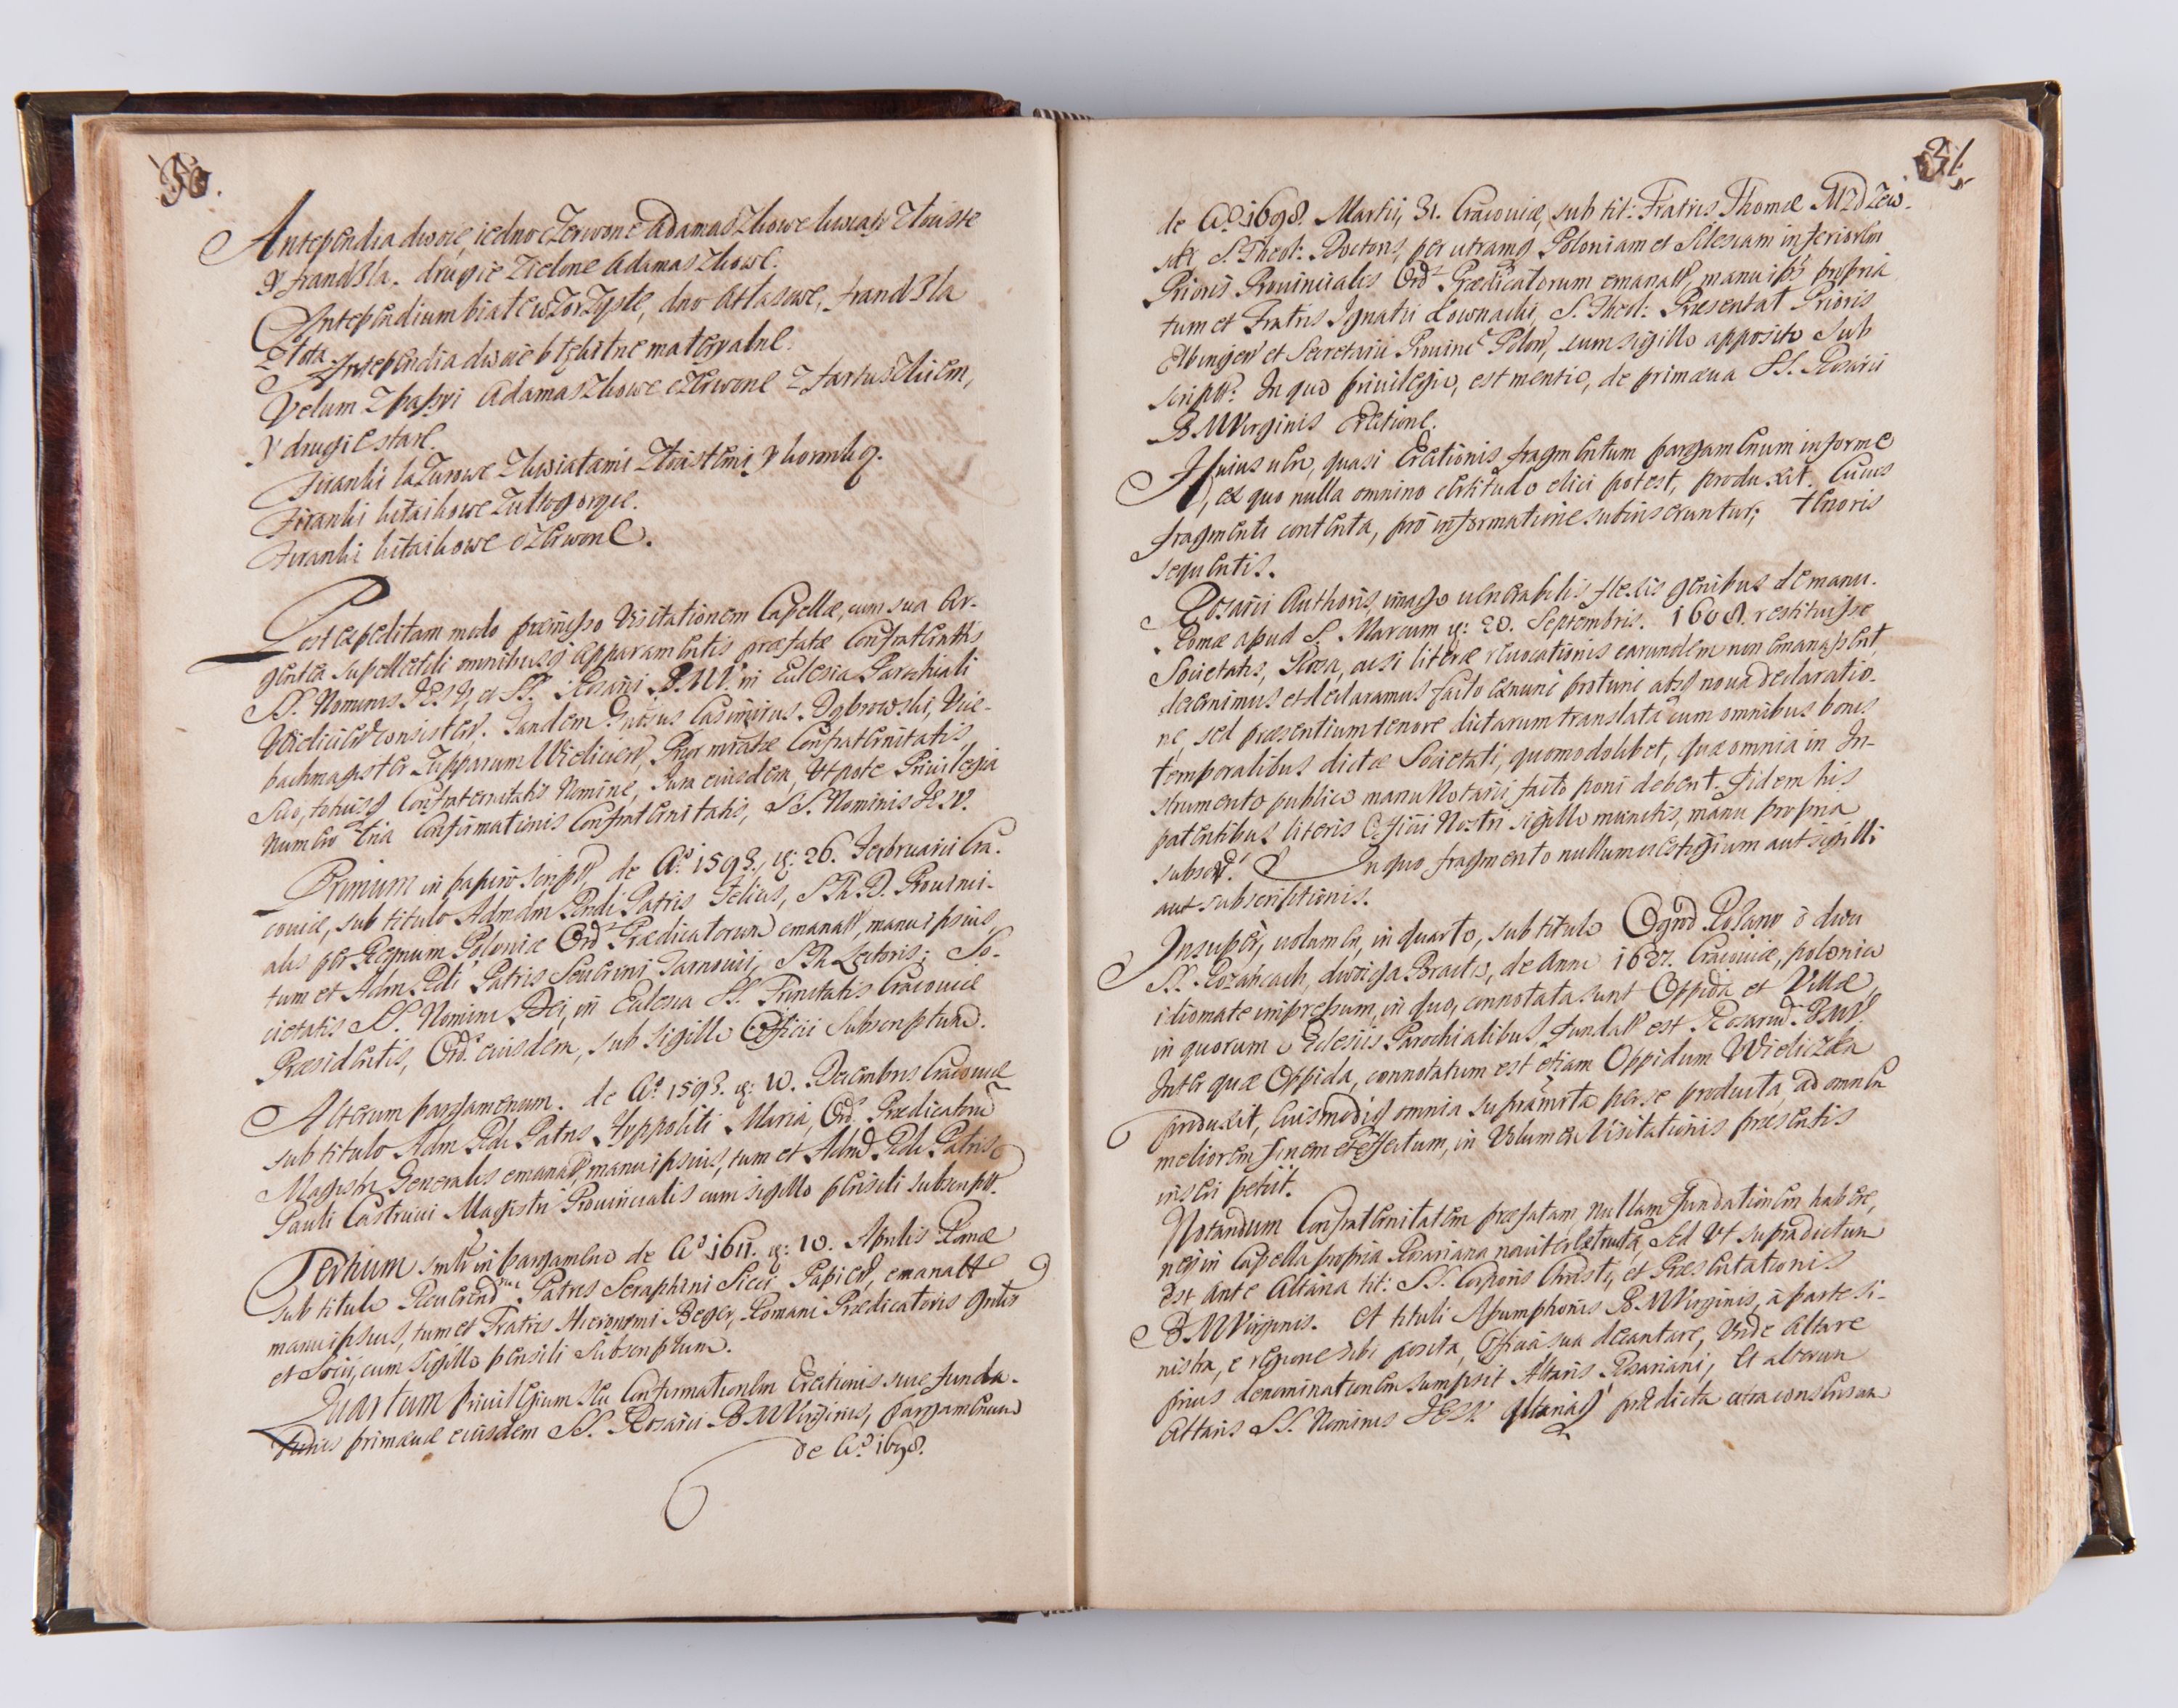 30.
Antependia dwoie, iedno czerwone Adamaszkowe kwiaty złoiste
y frandzla. drugie zielone Adamaszkowe.
Antependium białe wzorzyste, dno Atłasowe, frandzla
złota
Antependia dwoie błękitne materyalne.
Velum z paszri Adamaszkowe czerwone z fartuszkiem,
y drugie stare.
Firanki lazurowe z kwiatami złoistemi y koronką.
Firanki kitaikowe zułtogorące.
Firanki kitaikowe czerwone.
Post expeditam modo præmisso Visitationem Capellæ, cum sua Ar-
gentea supellectili omnibusq apparamentis præfatæ Confraternitatis
SS. Nominis JESU, et SS. Rosarii B.M.V. in Ecclesia Parochiali
Vieliciens consisten. Tandem Gnosus Casimirus Dąbrowski, Vice-
bachmagister Zupparum Wieliciens, Prior mratæ Confraternitatis,
suo, totiusq Confraternitatis Nomine, Jura eiusdem, Utpote Privilegia
Numero tria Confirmationis Confraternitatis, SS. Nominis JESV.
Primum in papiro script, de Ao 1593. 26. Februarii Cra-
coviæ, sub titulo Admdm Rndi Patris Felicis, S. Th. D. Provinci-
alis per Regnum Poloniæ Ord Prædicatorum emanat, manu ipsius,
tum et Adm Rdi Patris Severini Tarnovii, S Th Lectoris; So-
cietatis SS. Nominis Dei, in Ecclesia SS. Trinitatis Cracoviæ
Præsidentis, Ord. eiusdem, sub sigillo Officii Subscriptum.
Alterum pargamenum. de Ao 1593. 10. Decembris Cracoviæ
sub titulo Adm Rdi Patris Hyppoliti Maria, Ord. Prædicatorum
Magistri Generalis emanat, manu ipsius, tum et Admd Rdi Patris
Pauli Castrucii Magistri Provincialis cum sigillo pensili subscript.
Tertium smlr in pargameno de Ao 1611. 10. Aprilis Romæ
sub titulo Reverend Patris Seraphini Sicci Papien, emanatt
manu ipsius, tum et Fratris Hieronymi Romani Prædicatoris Gnlis
et Socii, cum sigillo pensili Subscriptum.
Quartum Privilegium seu Confirmationem Erectionis sive funda-
tionis primævæ eiusdem SS. Rosarii B M Virginis, pargamenum
de Ao 1698.
31.
de Ao 1698. Martii, 31. Cracoviæ, sub tit: Fratris Thomæ
S. Theol: Doctoris, per utramq Poloniam et Silesiam inferiorem
Prioris Provincialis Ord Prædicatorum emanat, manu ips propria
tum et Fratris Ignatii Łownacki, S. Theol: Præsentat Prioris
Elbingen et Secretarii Provinc Polon, cum sigillo apposito Sub
script: In quo privilegio, est mentio, de primæva SS. Rosarii
B. M Virginis Erectione.
Huius vero, quasi Erectionis fragmentum pargamenum informe
, ex quo nulla omnino certitudo elici potest, produxit. Cuius
fragmenti contenta, pro informatione subinseruntur; tenoris
sequentis.
Rosarii Authoris, imago venerabilis flexis genibus de manu.
Romæ apud S. Marcum 20. Septembris. 1608. restituisse
Societatis, Rosa, ac si literæ revocationis earundem non emanassent,
decernimus et declaramus facto ex nunc protunc absq nova declaratio-
ne, sed præsentium tenore dictarum translata cum omnibus bonis
temporalibus dictæ Societati, quomodolibet, quæ omnia in In-
strumento publico manu Notarii facto poni debent. Fidem his
patentibus literis Officii Nostri sigillo munitis, manu propria
subscr. In quo fragmento nullum vestigium aut sigilli
aut subscriptionis.
Insuper, volumen, in quarto, sub titulo Ogrod Rolany o dwu
SS. Rozańcach, dwoicga Bractw, de Anno 1627. Cracoviæ, polonico
idiomate impressum, in quo, connotata sunt Oppida et Villæ,
in quorum Ecclesiis Parochialibus fundat est Rosarium BMV.
Inter quæ Oppida, connotatum est etiam Oppidum Wieliczka
produxit, Cuismodiq omnia supramrta per se producta, ad omnem
meliorem finem et effectum, in Volumen Visitationis præsentis
inseri petiit.
Notandum Confraternitatem præfatam nullam fundationem habere,
neq in Capella propria Rosariana noviter extructa, Sed Ut supradictum
est, ante Altaria tit: SS. Corporis Christi, et Præsentationis
B M Virginis. et tituli Assumptionis B. M Virginis, à parte si-
nistra, e regione sibi posita, Officia sua decantare, Unde Altare
prius denominationem sumpsit Altaris Rosariani, et alterum
Altaris SS. Nominis JESU Altariaq prædicta citra consensum